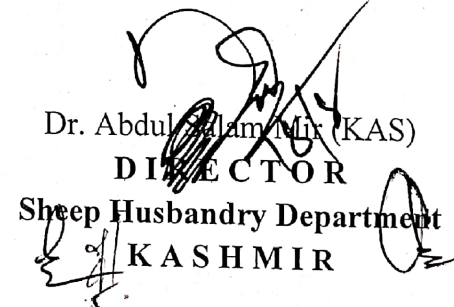 Dr. Abdul Salam Mir (KAS)
DIRECTOR
Sheep Husbandry Department
KASHMIR